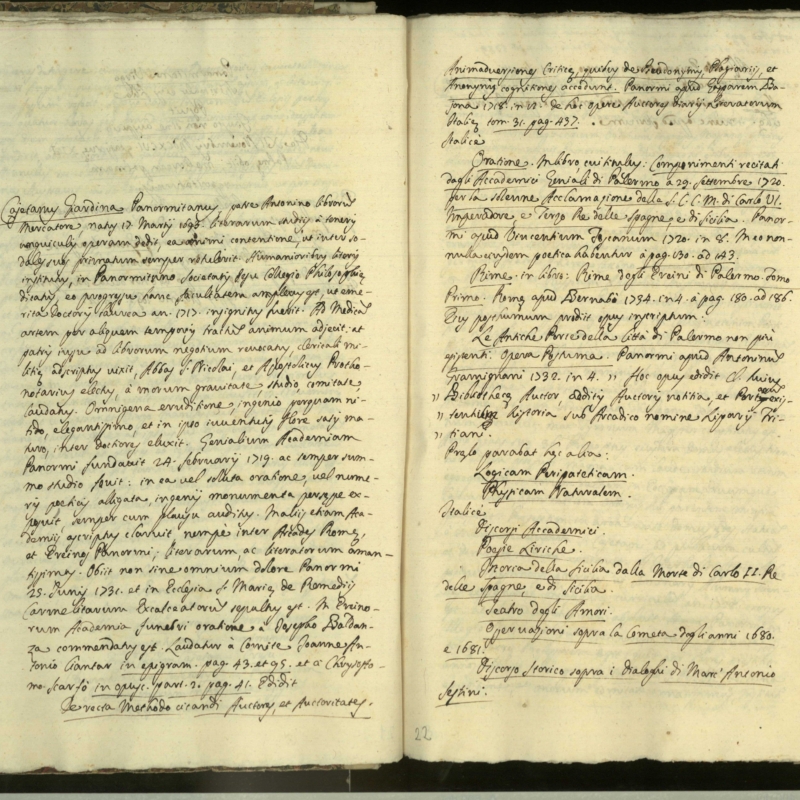 Cajetanus Giardina Panormitanus, patre Antonino librorum
Mercatore, natus 17. Martij 1693. literarum studijs a teneris
unguiculis operam dedit, ea animi contentione, ut inter so-
dales suos primatum semper obtulerit. Humanioribus literis
institutus, in Panormitano Societatis Jesu Collegio Philosophiæ
ditatus, eo progressu sane facultatem amplexus est, ut eme-
rita Doctoris laurea an. 1717. insignitus fuerit. Ad Medicam
artem per aliquem temporis tractum animum adjecit: at
patris jussu ad librorum negotium revocatus, clericali mi-
litiæ adscriptus vixit, Abbas S. Nicolai, et Apostolicus Protho-
notarius electus, a morum gravitate studio, comitate,
laudatus. Omnigena eruditione, ingenio perquam ni-
tido, elegantissimo, et in ipso juventutis flore satis ma-
turo, inter doctores eluxit. Genialium Academiam
Panormi fundavit 24. februarij 1719. ac semper sum-
mo studio fovit: in ea vel soluta oratione, vel nume-
ris poeticis alligata, ingenij monumenta persæpe ex-
posuit, semper cum plausu auditus. Malijs etiam Aca-
demijs ascriptus claruit, nempè inter Arcades Romæ,
et Ereinos Panormi, literarum, ac literatorum aman-
tissimus. Obijt non sine omnium dolore Panormi
25. Junij 1731. et in Ecclesia S. Mariæ de Remedijs
Carmelitarum Excalceatorum sepultus est. In Ereino-
rum Academia funebri oratione à Josepho Baldan-
za commendatus est. Laudatur à Comite Joanne An-
tonio Ciantar in epigram. pag. 43. et 95. et a Chrysosto-
mo Scarfò in opusc. part. 2. pag. 41. Edidit
De recta Methodo citandi Auctores, et Auctoritates.
Animadversiones Criticæ, quibus de Pseudonymis, Plagiarijs, et
Anonymis cognitiones accedunt. Panormi apud Gasparem Ba-
jona 1718. in 12. de hoc opere Auctores diarij Literatorum
Italiæ tom. 31. pag. 437.
Italicè
Oratione. In libro cui titulus: Componimenti recitati
dagli Accademici Geniali di Palermo a 29. Settembre 1720.
per la solenne Acclamazione della S. C. C. M. di Carlo VI.
Imperadore, e Terzo Re delle Spagne, e di Sicilia. Panor-
mi apud Vincentium Toscanum 1720. in 8. In eo non-
nulla ejusdem poetica habentur à pag. 130. ad 143.
Rime. in libro: Rime degli Ereini di Palermo Tomo
Primo. Romæ apud Bernabò 1734. in 4. à pag. 180. ad 186.
Ejus posthumum prodit opus inscriptum:
Le Antiche Porte della Città di Palermo non più
esistenti. Opera Postuma. Panormi apud Antoninum
Gramignani 1732. in 4. " Hoc opus edidit Cl. hujus
" Bibliothecæ Auctor, additis Auctoris notitia, et
" historia sub Arcadico nomine Liparis Tri-
" tiani.
Prælo parabat hæc alia:
Logicam Peripateticam.
Physicam Naturalem.
Italicè
Discorsi Accademici.
Poesie Liriche.
Istorica della Sicilia dalla Morte di Carlo II. Re
delle Spagne, e di Sicilia.
Teatro degli Amori.
Osservazioni sopra la Cometa dagli anni 1680.
e 1681.
Discorso Storico sopra i dialoghi di Marc'Antonio
Sestini.
22